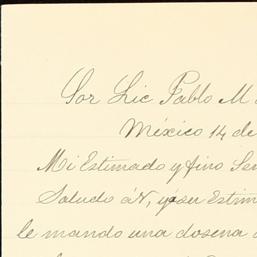 Sor Lic Pablo M
México 14 de
Mi Estimado y fino Señ
Saludo á V, y á su Estim
le mando una dosena